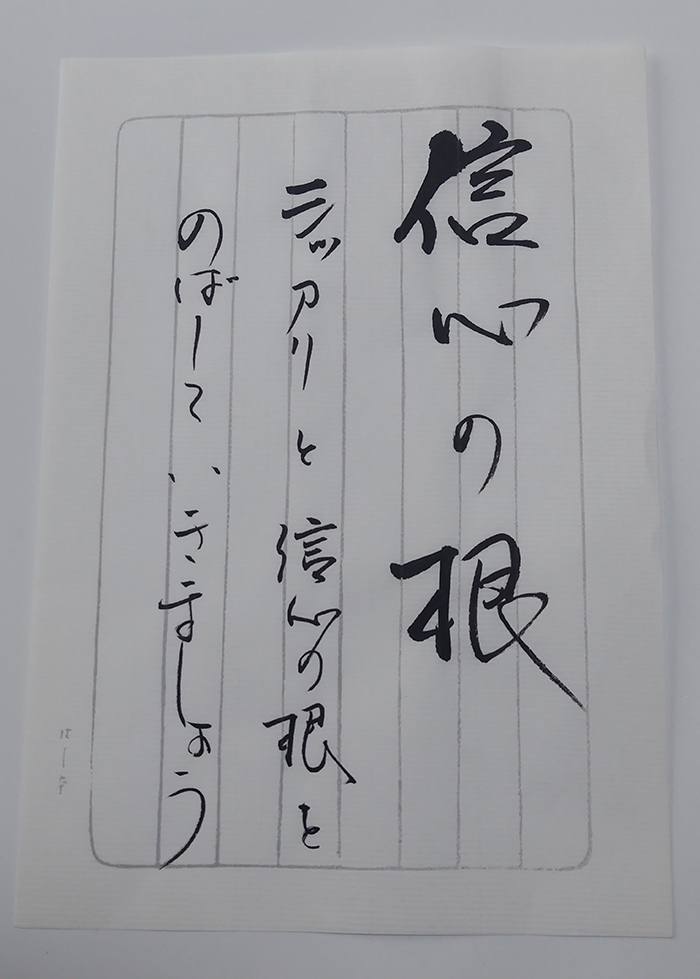 信心の根
シッカリと信心の根を
のばしていきましょう